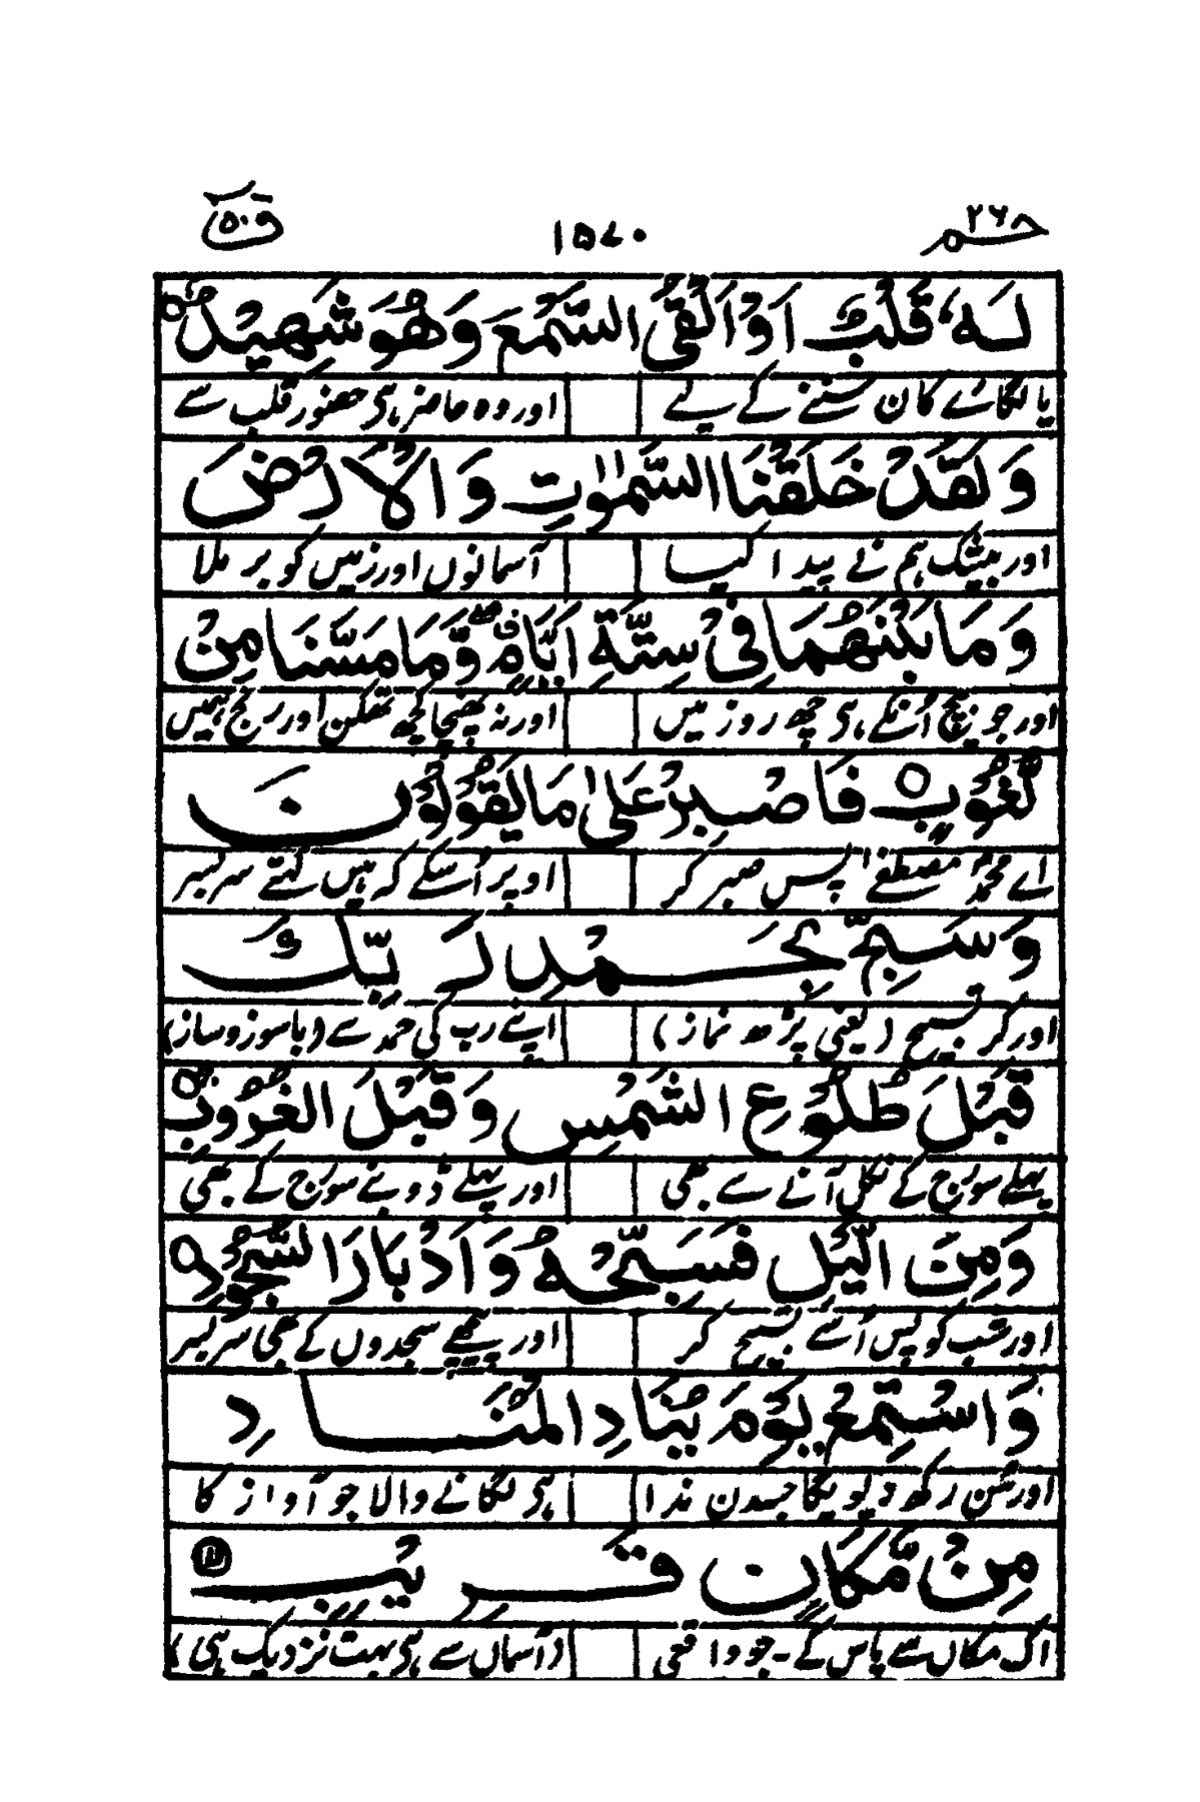 حٰم ٢٦ ١٥٧٠ قٓ ٥٠
لَهٗ قَلْبٌ اَوْ اَلْقَی السَّمْعَ وَهُوَ شَهِیْدٌ ○
یا لگائے کان سننے کے لیے اور وہ حاضر ہی حضور قلب سے
وَلَقَدْ خَلَقْنَا السَّمٰوٰتِ وَالْاَرْضَ
اور بیشک ہم نے پیدا کیا آسمانوں اور زمیں کو بر ملا
وَمَا بَیْنَهُمَا فِیْ سِتَّةِ اَیَّامٍ ۖق وَّمَا مَسَّنَا مِنْ
اور جو بیچ اُنکے ہی چھ روز میں اور نہ پہنچا کچھ تھکن اور رنج ہمیں
لُّغُوْبٍ ○ فَاصْبِرْ عَلٰی مَا یَقُوْلُوْنَ
اے محمدؐ مصطفےٰ پس صبر کر اوپر اُسکے کہ ہیں کہتے سر بسر
وَسَبِّحْ بِحَمْدِ رَبِّكَ
اور کر تسبیح (یعنی پڑھ نماز) اپنے رب کی حمد سے (با سوز و ساز)
قَبْلَ طُلُوْعِ الشَّمْسِ وَقَبْلَ الْغُرُوْبِ ○
پہلے سورج کے نکل آنے سے بھی اور پہلے ڈوبنے سورج کے بھی
وَمِنَ الَّیْلِ فَسَبِّحْهُ وَاَدْبَارَ السُّجُوْدِ ○
اور شب کو پس اُسے تسبیح کر اور پیچھے سجدوں کے بھی سر بسر
وَاسْتَمِعْ یَوْمَ یُنَادِ الْمُنَادِ
اور سُن رکھ دیویگا جسدن ندا ہی لگانے والا جو آواز کا
مِنْ مَّكَانٍ قَرِیْبٍ
اک مکاں سے پاس کے - جو واقعی (آسماں سے ہی بہت نزدیک ہی)